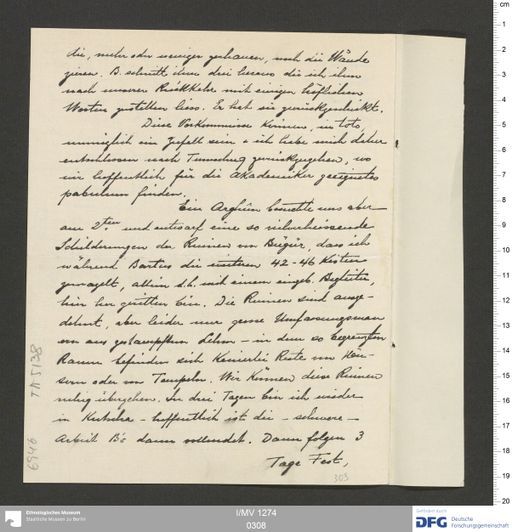 die, mehr oder weniger zerhauen, noch die Wände
zieren. B. schnitt ihm drei heraus die ich ihm
nach unserer Rückkehr mit einigen höflichen
Worten zustellen liess. Er hat sie zurückgeschickt.
Diese Vorkommnisse können, in toto,
unmöglich ein Zufall sein & ich habe mich daher
entschlossen nach Tumschuq zurückzugehen, wo
wir hoffentlich für die Akademiker geeignetes
pabulum finden.
Ein Arghün besuchte uns aber
am 2ten und entwarf eine so vielverheissende
Schilderungen der Ruinen von Bügür, dass ich
während Bartus die unteren 42-46 Kisten
zunagelt, allein d.h. mit einem eingeb. Begleiter,
hin her geritten bin. Die Ruinen sind ausge-
dehnt, aber leider nur grosse Umfassungsmau
ern aus gestampftem Lehm - in dem so begrenzten
Raum befinden sich keinerlei Reste von Häu-
sern oder von Tempeln. Wir können diese Ruinen
ruhig übergehen. In drei Tagen bin ich wieder
in Kutscha - hoffentlich ist die - schwere -
Arbeit B's dann vollendet. Dann folgen 3
Tage Fest,
303
TA 5138
6946
Ethnologisches Museum
Staatliche Museen zu Berlin
I/MV 1274
0308
Gefördert durch
DFG Deutsche
Forschungsgemeinschaft
cm
1
2
3
4
5
6
7
8
9
10
11
12
13
14
15
16
17
18
19
20